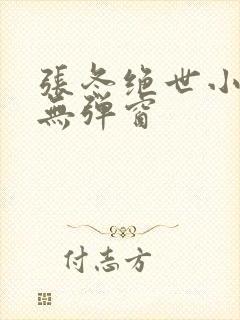 張冬绝世小
無弹窗
付志方